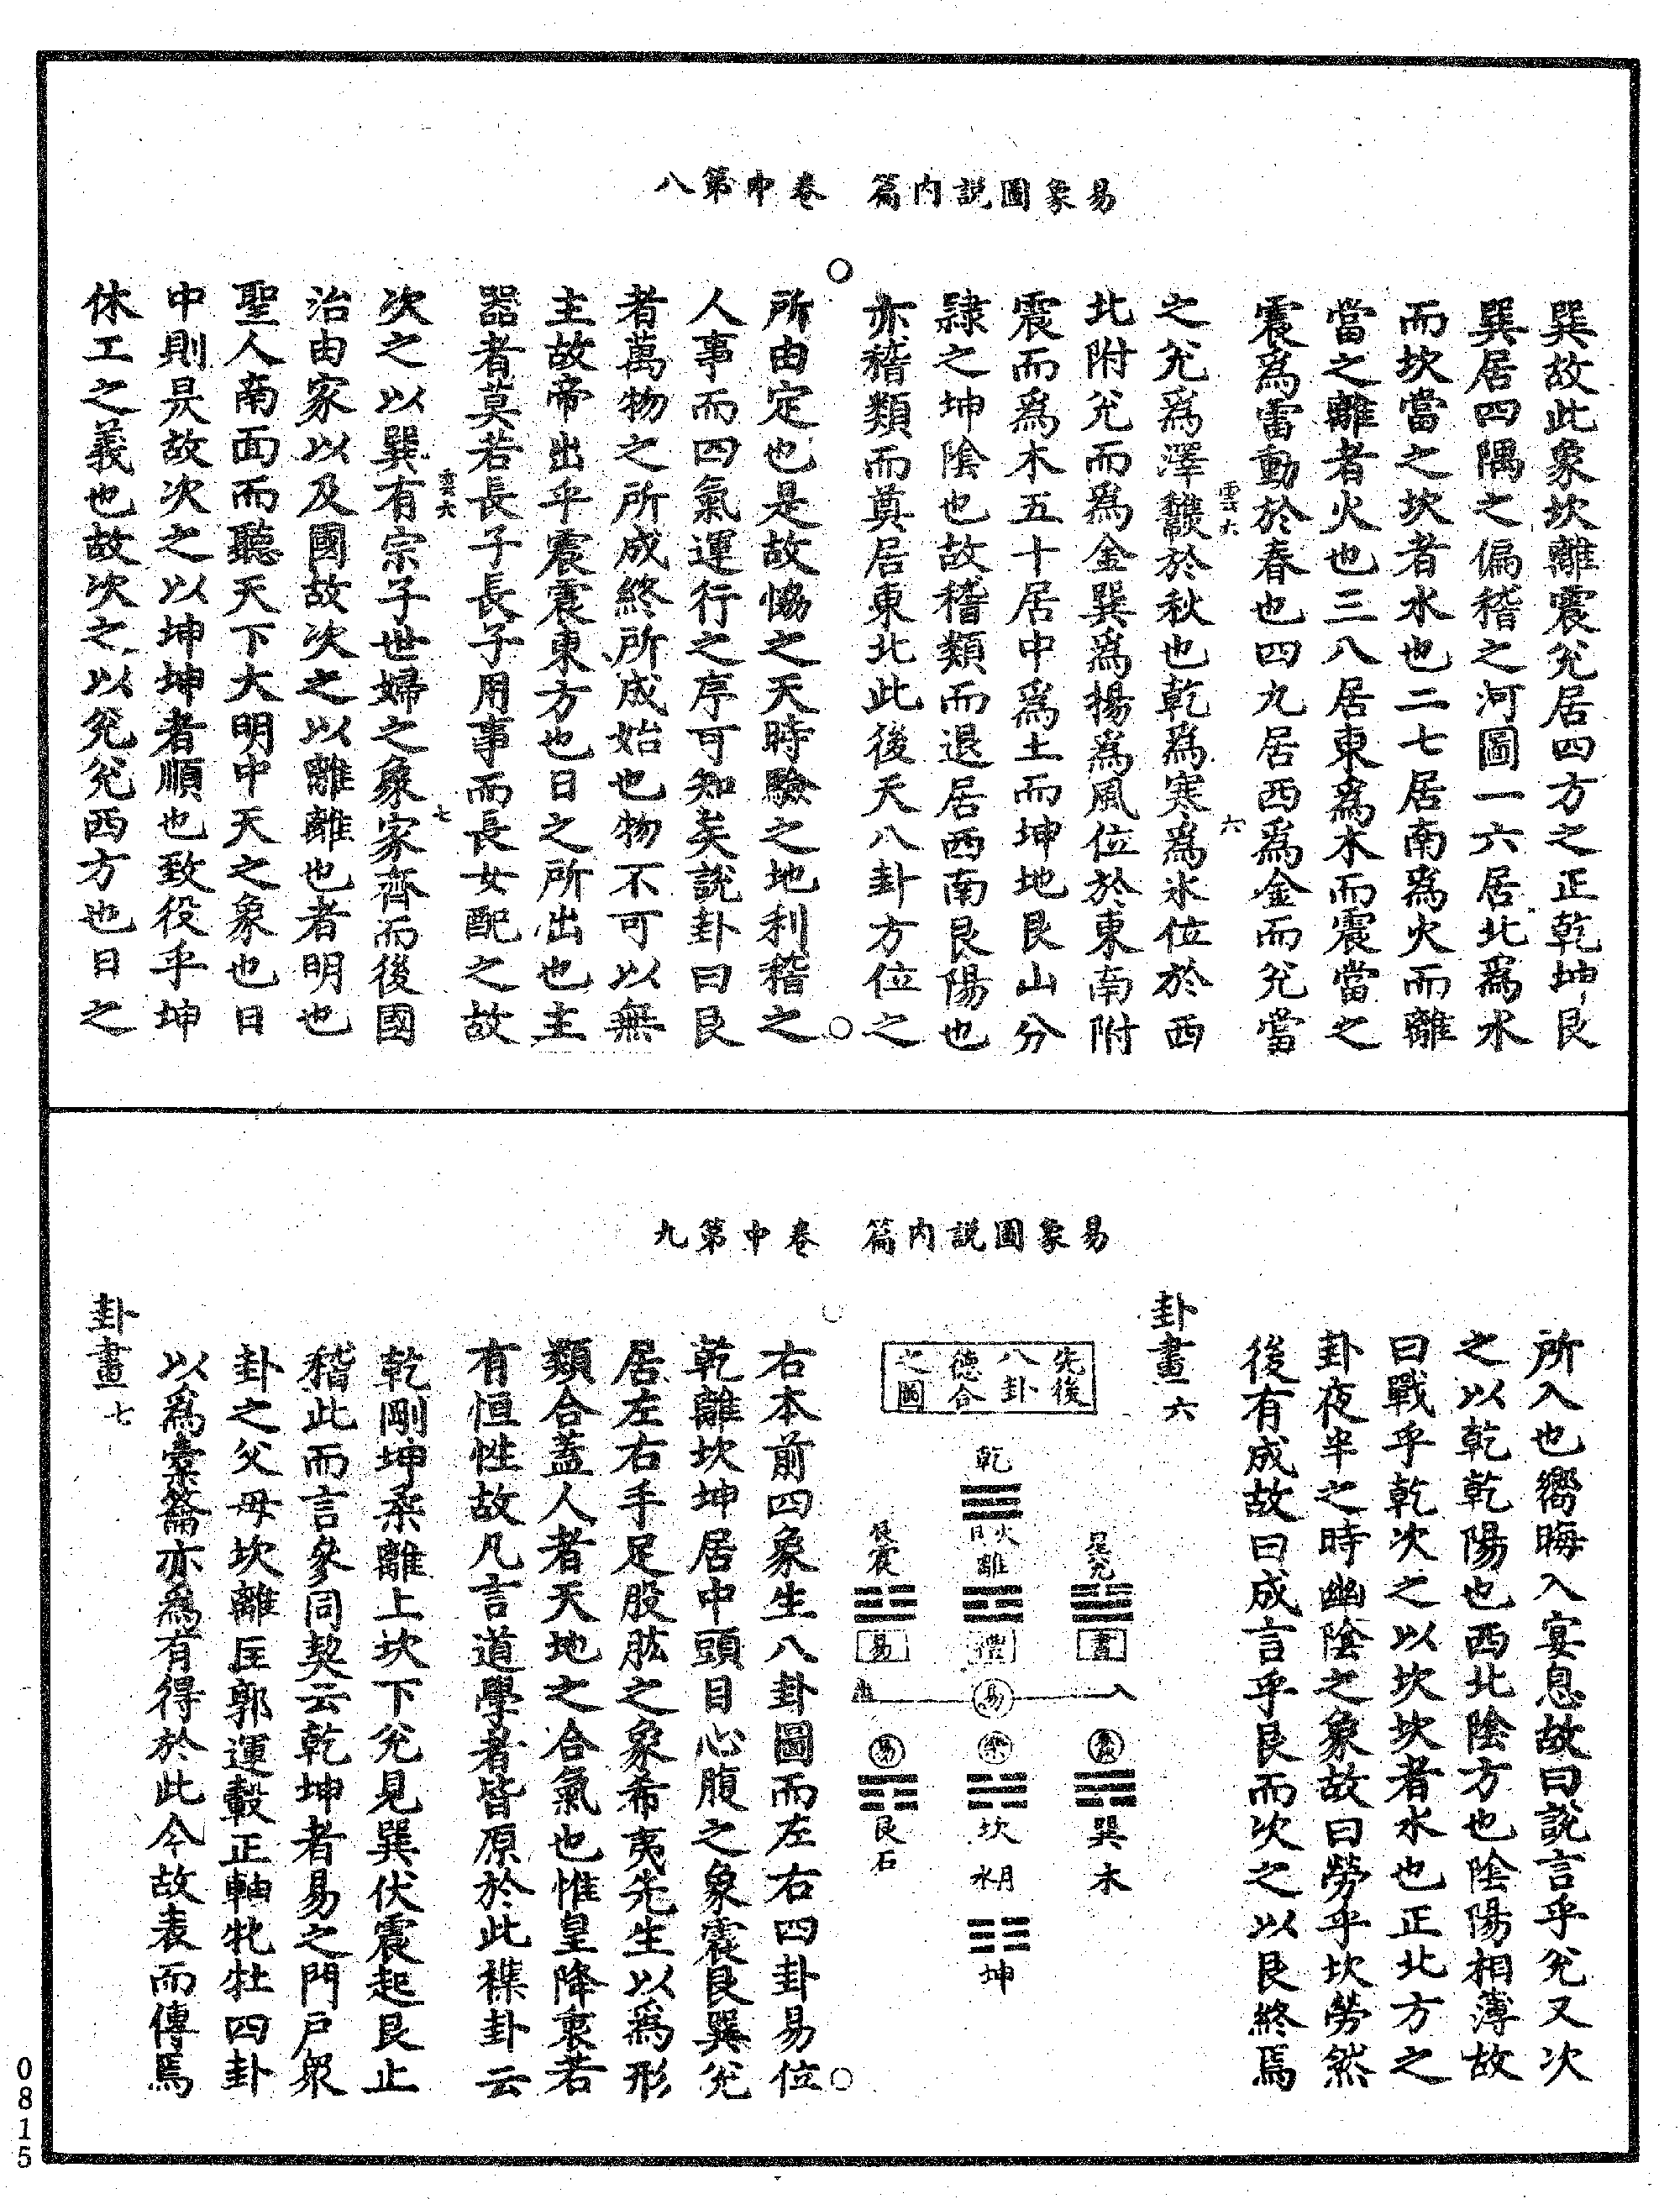 易象圖説内篇　卷中第八
巽故此象坎離震兊居四方之正乾坤艮
巽居四隅之偏稽之河圖一六居北爲水
而坎當之坎者水也二七居南爲火而離
當之離者火也三八居東爲木而震當之
震爲雷動於春也四九居西爲金而兊當
之兊爲澤
於秋也乾爲寒爲氷位於西
雲六
六
北附兊而爲金巽爲揚爲風位於東南附
震而爲木五十居中爲土而坤地艮山分
隷之坤陰也故稽類而退居西南艮陽也
亦稽類而奠居東北此後天八卦方位之
所由定也是故恊之天時驗之地利稽之
人事而四氣運行之序可知矣說卦曰艮
者萬物之所成終所成始也物不可以無
主故帝出乎震震東方也日之所出也主
器者莫若長子長子用事而長女配之故
雲六
七
次之以巽有宗子世婦之象家齊而後國
治由家以及國故次之以離離也者明也
聖人南面而聽天下大明中天之象也日
中則昃故次之以坤坤者順也致役乎坤
休工之義也故次之以兊兊西方也日之
易象圖説内篇　卷中第九
所入也嚮晦入宴息故曰說言乎兊又次
之以乾乾陽也西北陰方也陰陽相薄故
曰戰乎乾次之以坎坎者水也正北方之
卦夜半之時幽陰之象故曰勞乎坎勞然
後有成故曰成言乎艮而次之以艮終焉
卦畫六
先後
八卦
德合
之圖
乾
火
日
離
兊
震
書
禮
易
入
易
樂
易
巽
木
坎
月
水
艮
石
坤
右本前四象生八卦圖而左右四卦易位
乾離坎坤居中頭目心腹之象震艮巽兊
居左右手足股肱之象希夷先生以爲形
類合蓋人者天地之合氣也惟皇降衷若
有恒性故凡言道學者皆原於此襍卦云
乾剛坤柔離上坎下兊見巽伏震起艮止
稽此而言參同契云乾坤者易之門戸衆
卦之父母坎離匡郭運轂正軸牝牡四卦
以爲橐籥亦爲有得於此今故表而傳焉
卦畫七
0815